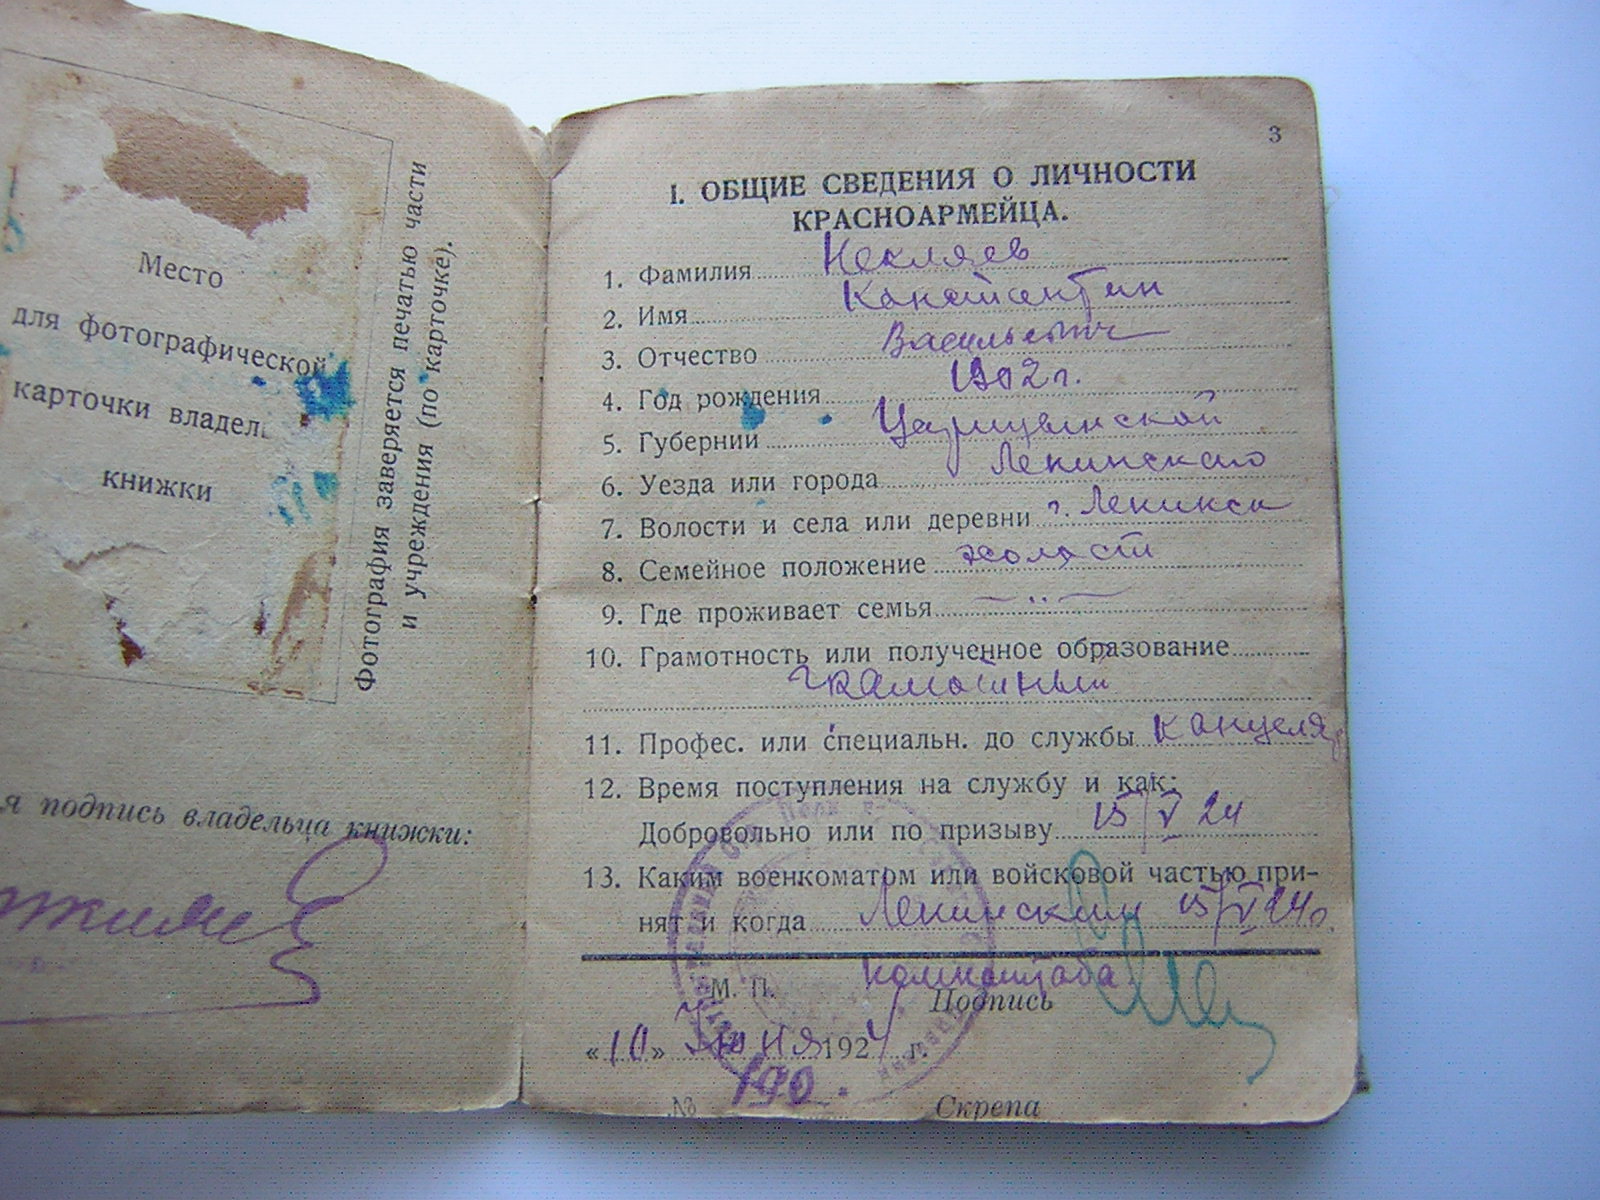 Место
для фотографической
карточки владел
книжки
Фотография заверяется печатью части
и учреждения (по карточке).
я подпись владельца книжки:
3
I. ОБЩИЕ СВЕДЕНИЯ О ЛИЧНОСТИ
КРАСНОАРМЕЙЦА.
1. Фамилия Некляев
2. Имя Константин
3. Отчество Васильевич
4. Год рождения 1902 г.
5. Губернии Царицынской
6. Уезда или города Ленинского
7. Волости и села или деревни г. Ленинск
8. Семейное положение холост
9. Где проживает семья — ·· —
10. Грамотность или полученное образование
грамотный
11. Профес. или специальн. до службы Канцеляр
12. Время поступления на службу и как:
Добровольно или по призыву 15/V 24
13. Каким военкоматом или войсковой частью при-
нят и когда Ленинским 15/V 24г.
М. П. Подпись
«10» Июня 1924 г.
№ 190. Скрепа